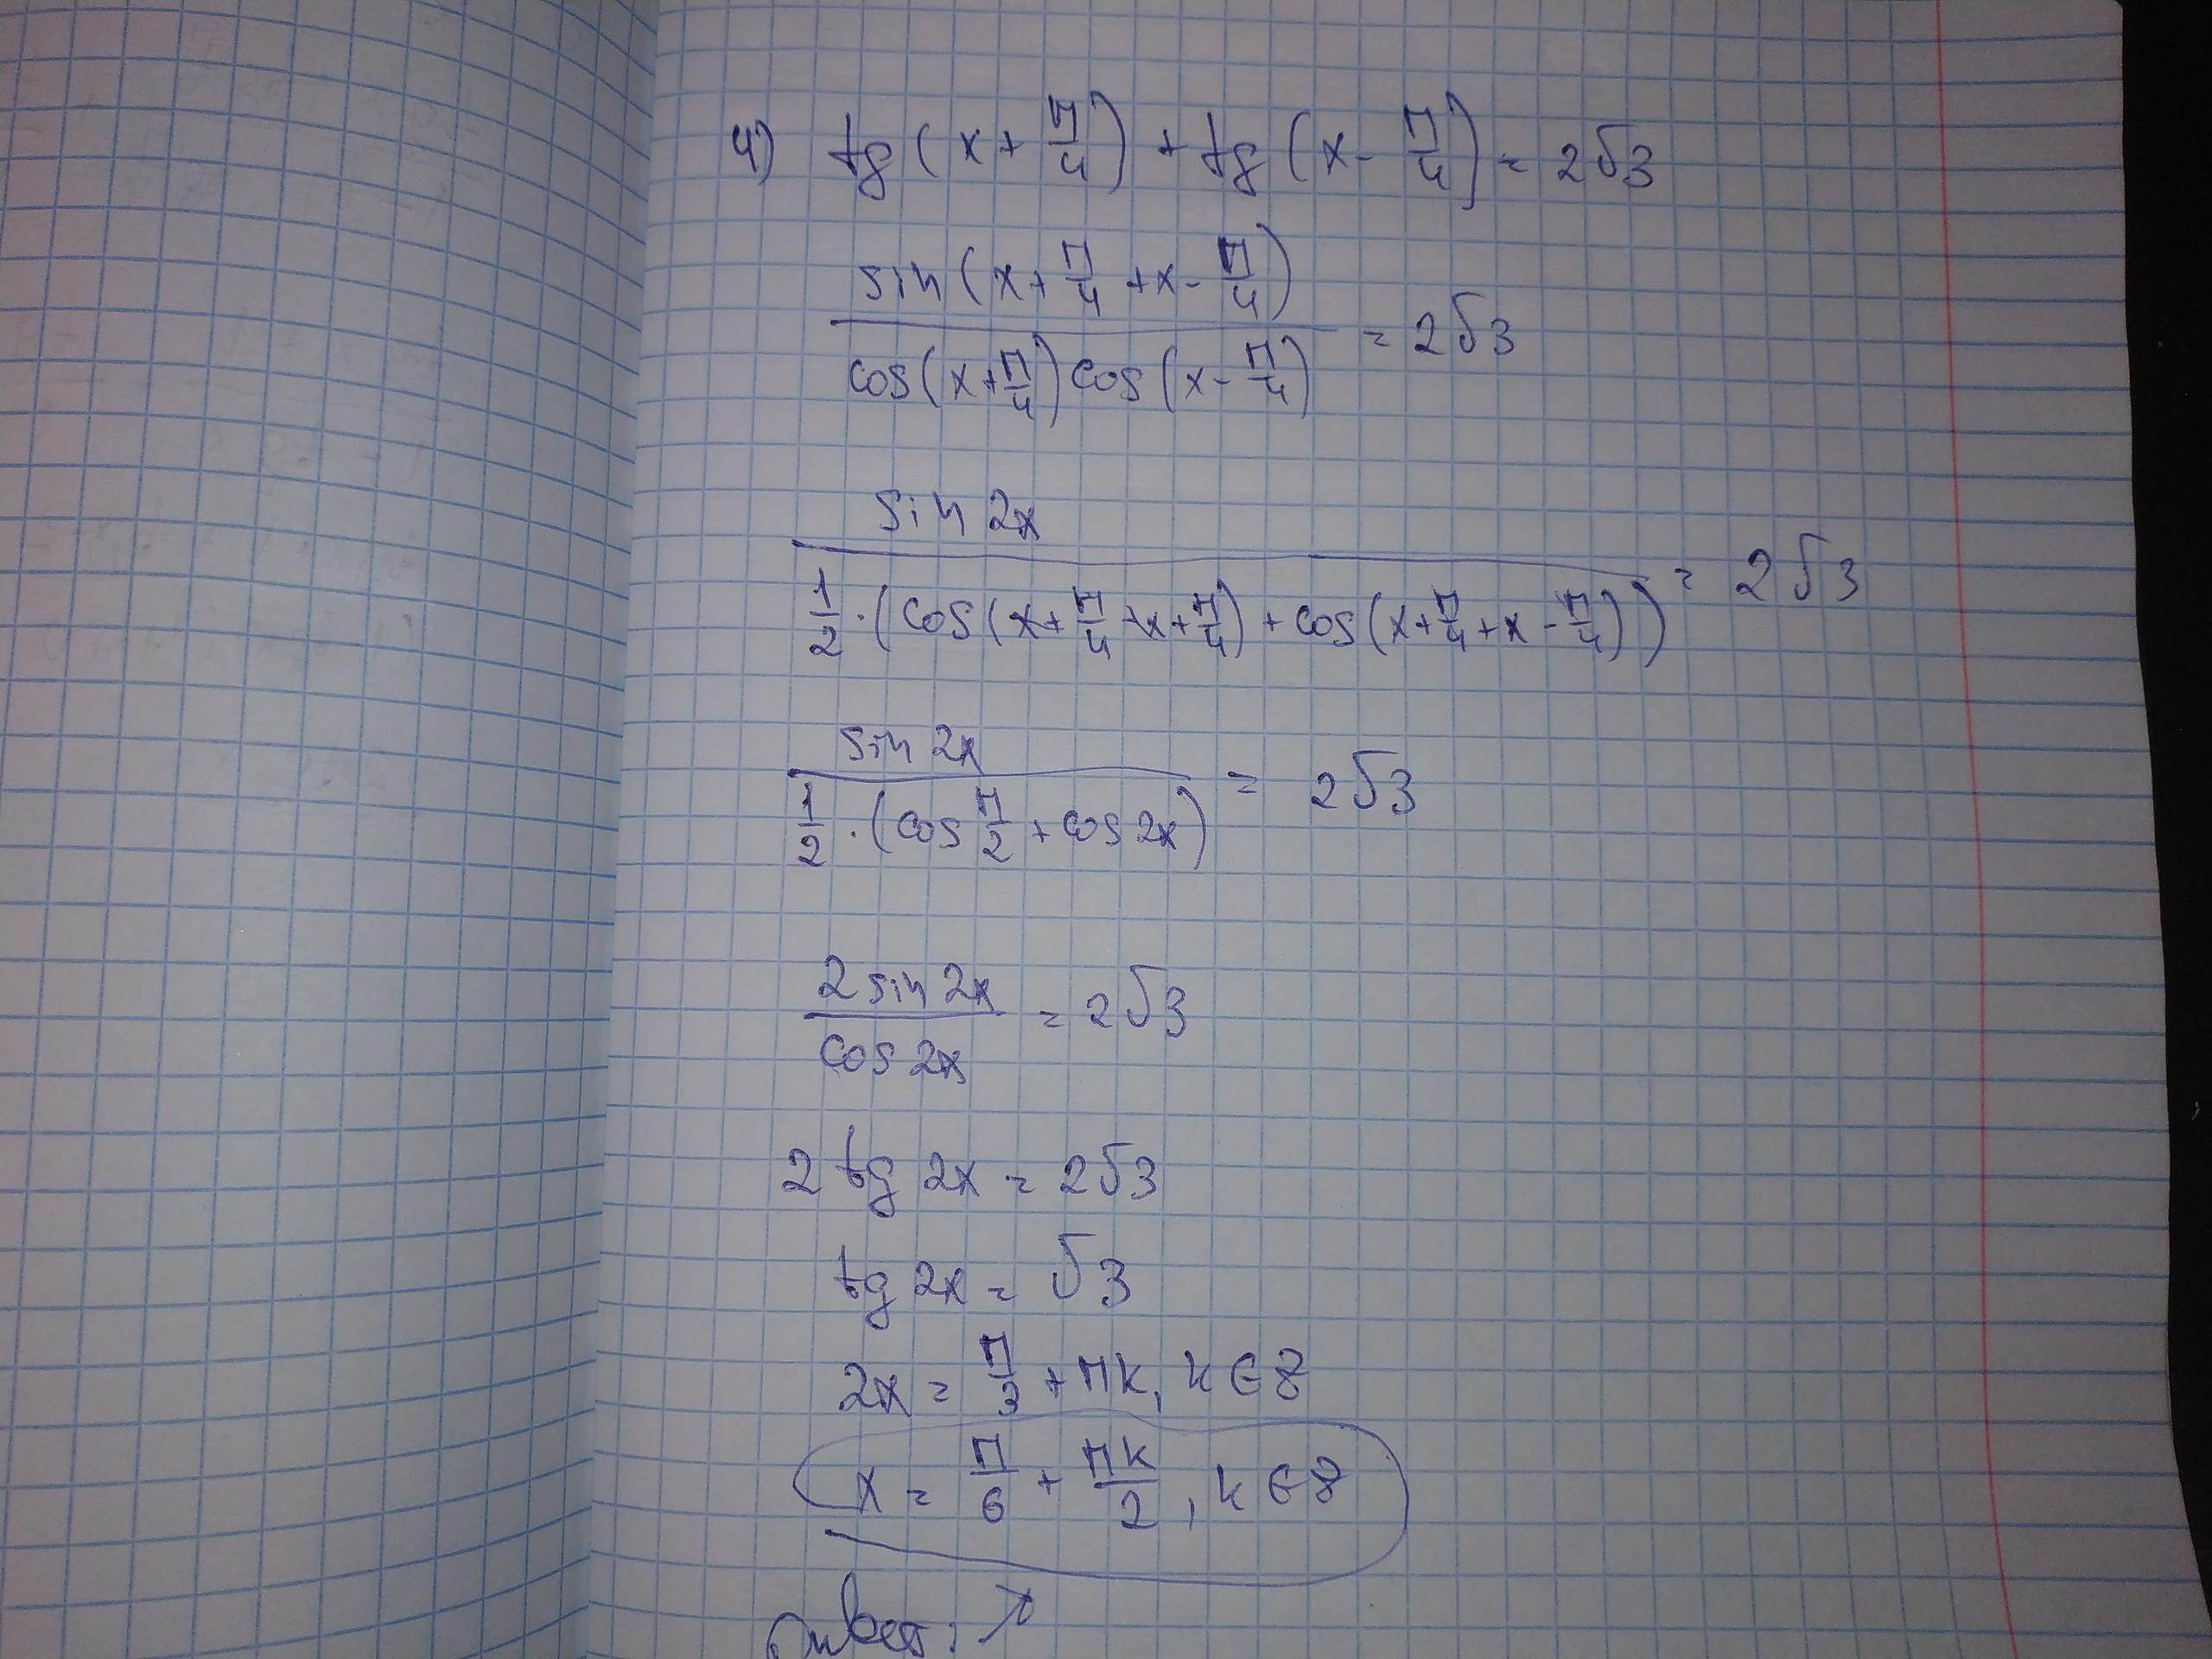 4) tg(x + π/4) + tg(x - π/4) = 2√3
sin(x + π/4 + x - π/4) / cos(x + π/4) cos(x - π/4) = 2√3
sin 2x / 1/2 · (cos(x + π/4 - x + π/4) + cos(x + π/4 + x - π/4)) = 2√3
sin 2x / 1/2 · (cos π/2 + cos 2x) = 2√3
2 sin 2x / cos 2x = 2√3
2 tg 2x = 2√3
tg 2x = √3
2x = π/3 + πk, k ∈ Z
x = π/6 + πk/2, k ∈ Z
Ответ: ↗